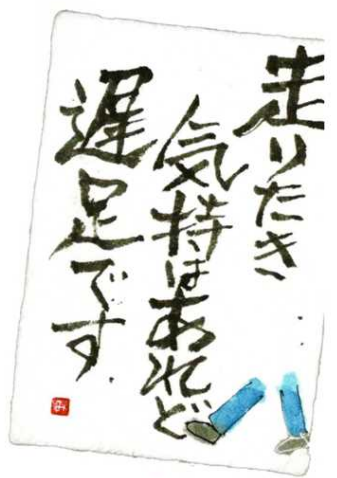 走りたき
気持はあれど
遅足です